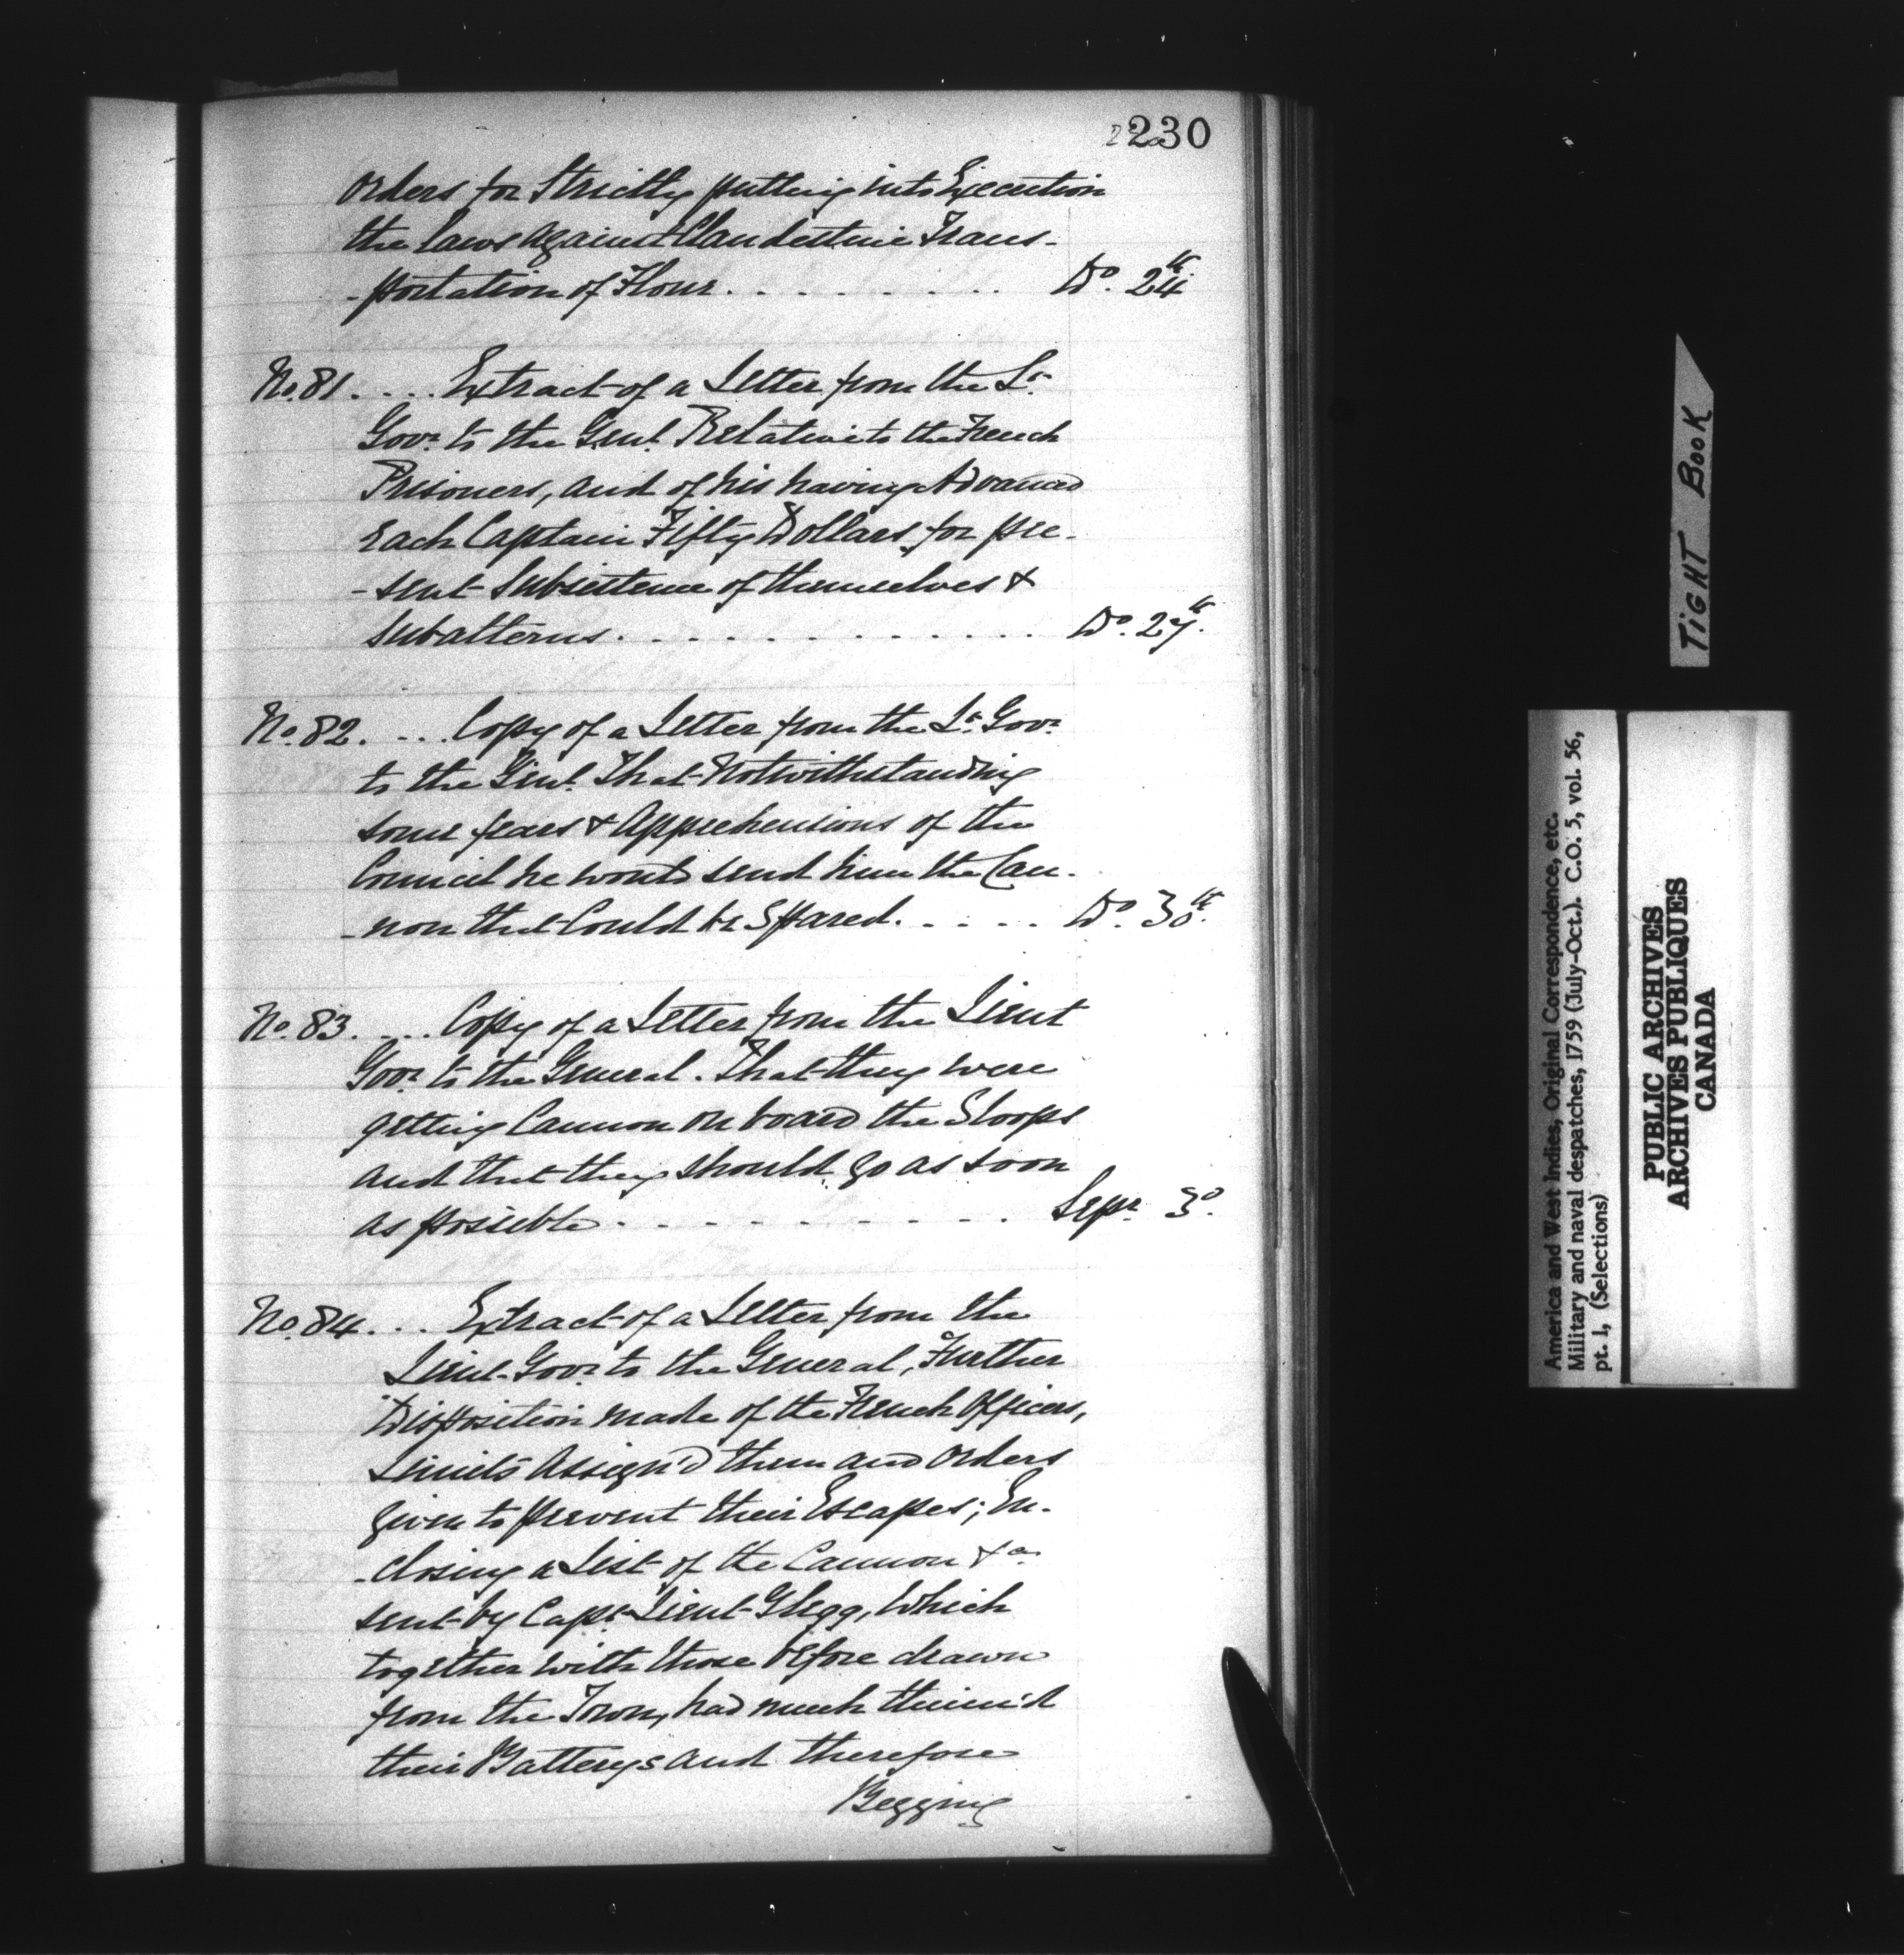 230
orders for Strictly putting into Execution
the Laws against Clandestine Trans-
-portation of Flour . . . . . . . . . Do. 24th
No. 81. . . . Extract of a Letter from the Lt.
Govr. to the Genl. Relative to the French
Prisoners, and of his having Advanced
each Captain Fifty Dollars for pre-
-sent Subsistence of themselves &
Subalterns . . . . . . . . . . . . Do. 27th.
No. 82. . . . Copy of a Letter from the Lt. Govr.
to the Genl. That Notwithstanding
some fears & Apprehensions of the
Council he would send him the Can-
-non that Could be Spared. . . . . Do. 30th.
No. 83. . . . Copy of a Letter from the Lieut
Govr. to the General. That they were
getting Cannon on board the Sloops
and that they should go as soon
as possible . . . . . . . . . . Sepr. 3d.
No. 84. . . Extract of a Letter from the
Lieut. Govr. to the General, Further
Disposition made of the French Officers,
Limits Assign'd them and orders
given to prevent their Escapes; En-
-closing a List of the Cannon &a.
sent by Capt. Lieut. Glegg, Which
together with those before drawn
from the Town, had much thinn'd
their Batterys and therefore
Begging
TIGHT BOOK
America and West Indies, Original Correspondence, etc.
Military and naval despatches, 1759 (July-Oct.). C.O. 5, vol. 56,
pt. 1, (Selections)
PUBLIC ARCHIVES
ARCHIVES PUBLIQUES
CANADA